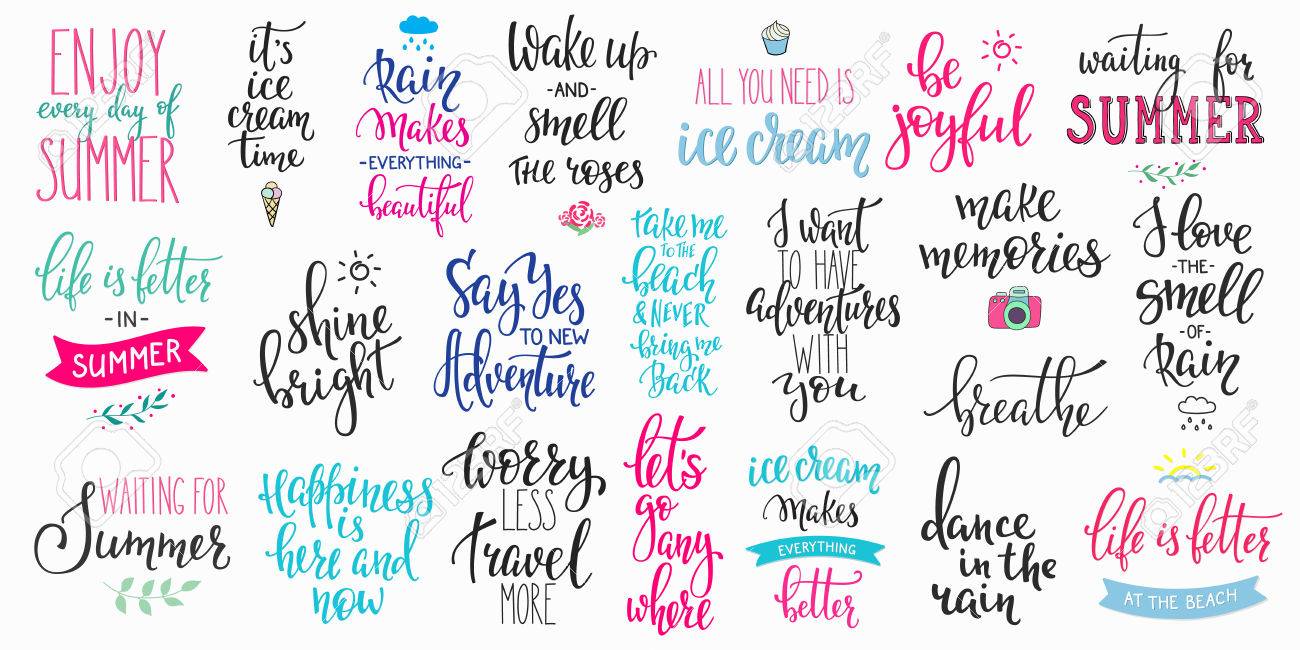 ENJOY
every day of
SUMMER
it's
ice
cream
time
Rain
Makes
-EVERYTHING-
beautiful
Wake up
-AND-
smell
THE ROSES
ALL YOU NEED IS
ice cream
be
joyful
waiting for
SUMMER
life is better
-IN-
SUMMER
shine
bright
Say Yes
TO NEW
Adventure
take me
TO THE
beach
& NEVER
bring me
Back
I want
TO HAVE
adventures
WITH
you
make
memories
breathe
I love
-THE-
smell
-OF-
Rain
WAITING FOR
Summer
Happiness
is
here and
now
Worry
LESS
Travel
MORE
let's
go
any
where
ice cream
Makes
EVERYTHING
better
dance
in the
rain
life is better
AT THE BEACH
123RF